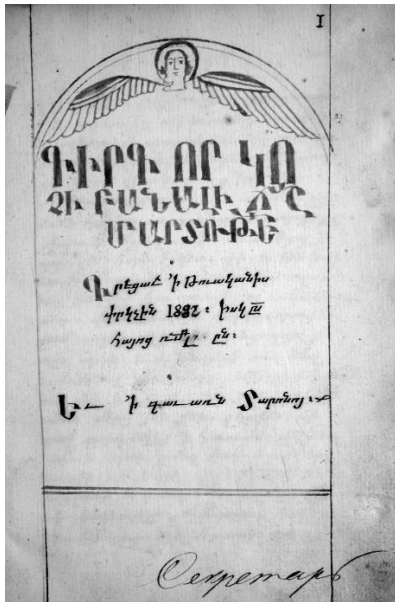 1
ԳԻՐԳ ՈՐ ԿՈ
ՉԻ ԲԱՆԱԼԻ ՃՇ
ՄԱՐՏՈՒԹԵ
Գրեցաւ ՚ի Թուականիս
փրկչին 1882 : Իսկ
հայոց ռմլ ըն :
Եւ ՚ի գաւառն Տարօնոյ :
Секретарь